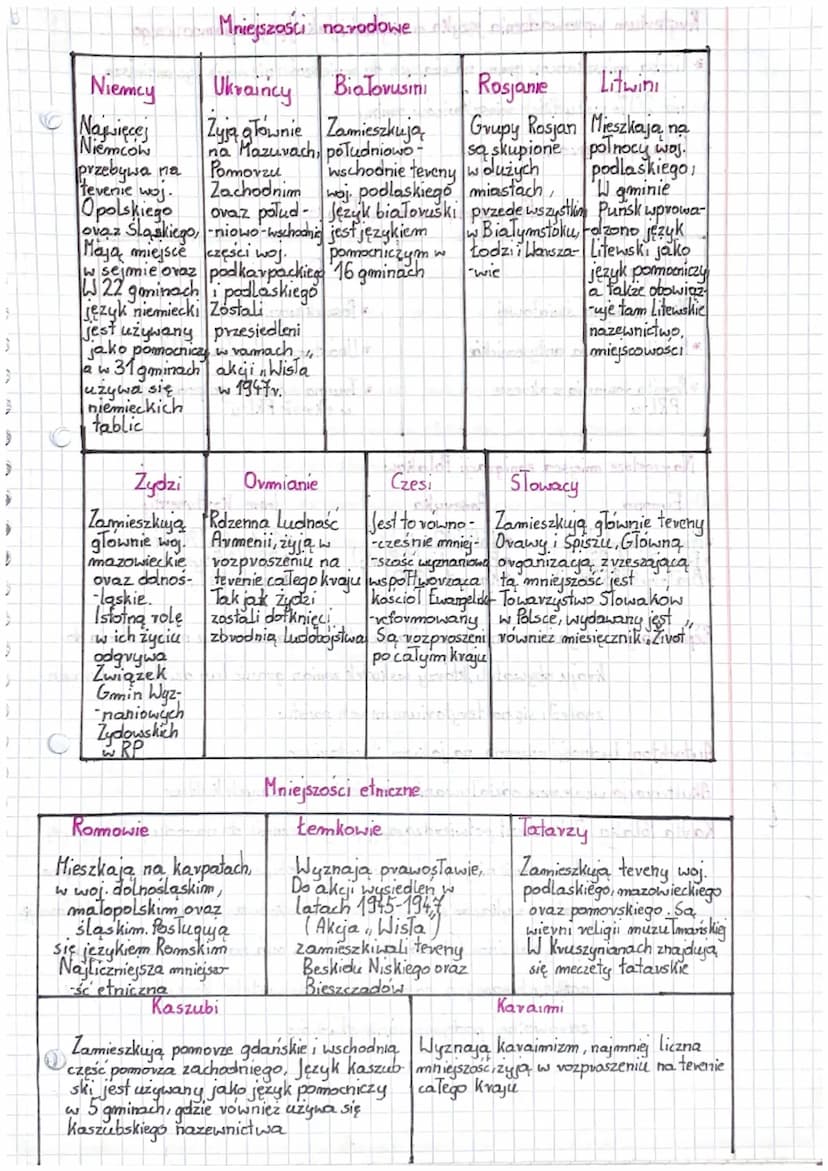 Mniejszości narodowe
Niemcy
Najwięcej
Niemców
przebywa na
terenie woj.
Opolskiego
oraz Śląskiego,
Mają miejsce
w sejmie oraz
W 22 gminach
język niemiecki
jest używany
jako pomocniczy
a w 31 gminach
używa się
niemieckich
tablic
Ukraińcy
Żyją głównie
na Mazurach,
Pomorzu
Zachodnim
oraz połud-
-niowo-wschodniej
części woj.
podkarpackiego
i podlaskiego
Zostali
przesiedleni
w ramach
akcji „Wisła"
w 1947r.
Białorusini
Zamieszkują
południowo-
wschodnie tereny
woj. podlaskiego
Język białoruski
jest językiem
pomocniczym w
16 gminach
Rosjanie
Grupy Rosjan
są skupione
w dużych
miastach,
przede wszystkim
w Białymstoku,
Łodzi i Warsza-
-wie
Litwini
Mieszkają na
północy woj.
podlaskiego,
W gminie
Puńsk wprowa-
-dzono język
Litewski jako
język pomocniczy
a także obowiąz-
-uje tam Litewskie
nazewnictwo
miejscowości
Żydzi
Zamieszkują
głównie woj.
mazowieckie
oraz dolnoś-
-ląskie.
Istotną rolę
w ich życiu
odgrywa
Związek
Gmin Wyz-
-naniowych
Żydowskich
w RP
Ormianie
Rdzenna Ludność
Armenii, żyją w
rozproszeniu na
terenie całego kraju
Tak jak żydzi
zostali dotknięci
zbrodnią Ludobójstwa
Czesi
Jest to równo-
-cześnie mniej-
-szość wyznaniowa
współtworząca
kościół Ewangelicko
-reformowany
Są rozproszeni
po całym kraju
Słowacy
Zamieszkują głównie tereny
Orawy i Spiszu, Główną
organizacją zrzeszającą
tą mniejszość jest
Towarzystwo Słowaków
w Polsce, wydawany jest
również miesięcznik „Život"
Mniejszości etniczne
Romowie
Mieszkają na karpatach,
w woj. dolnośląskim,
małopolskim oraz
śląskim. Posługują
się językiem Romskim
Najliczniejsza mniejszo-
-ść etniczna
Łemkowie
Wyznają prawosławie,
Do akcji wysiedleń w
latach 1945-1947
(Akcja „Wisła")
zamieszkiwali tereny
Beskidu Niskiego oraz
Bieszczadów
Tatarzy
Zamieszkują tereny woj.
podlaskiego, mazowieckiego
oraz pomorskiego. Są
wierni religii muzułmańskiej
W Kruszynianach znajdują
się meczety tatarskie
Kaszubi
Zamieszkują pomorze gdańskie i wschodnią
część pomorza zachodniego. Język kaszub-
ski jest używany jako język pomocniczy
w 5 gminach, gdzie również używa się
kaszubskiego nazewnictwa
Karaimi
Wyznają karaimizm, najmniej liczna
mniejszość, żyją w rozproszeniu na terenie
całego kraju